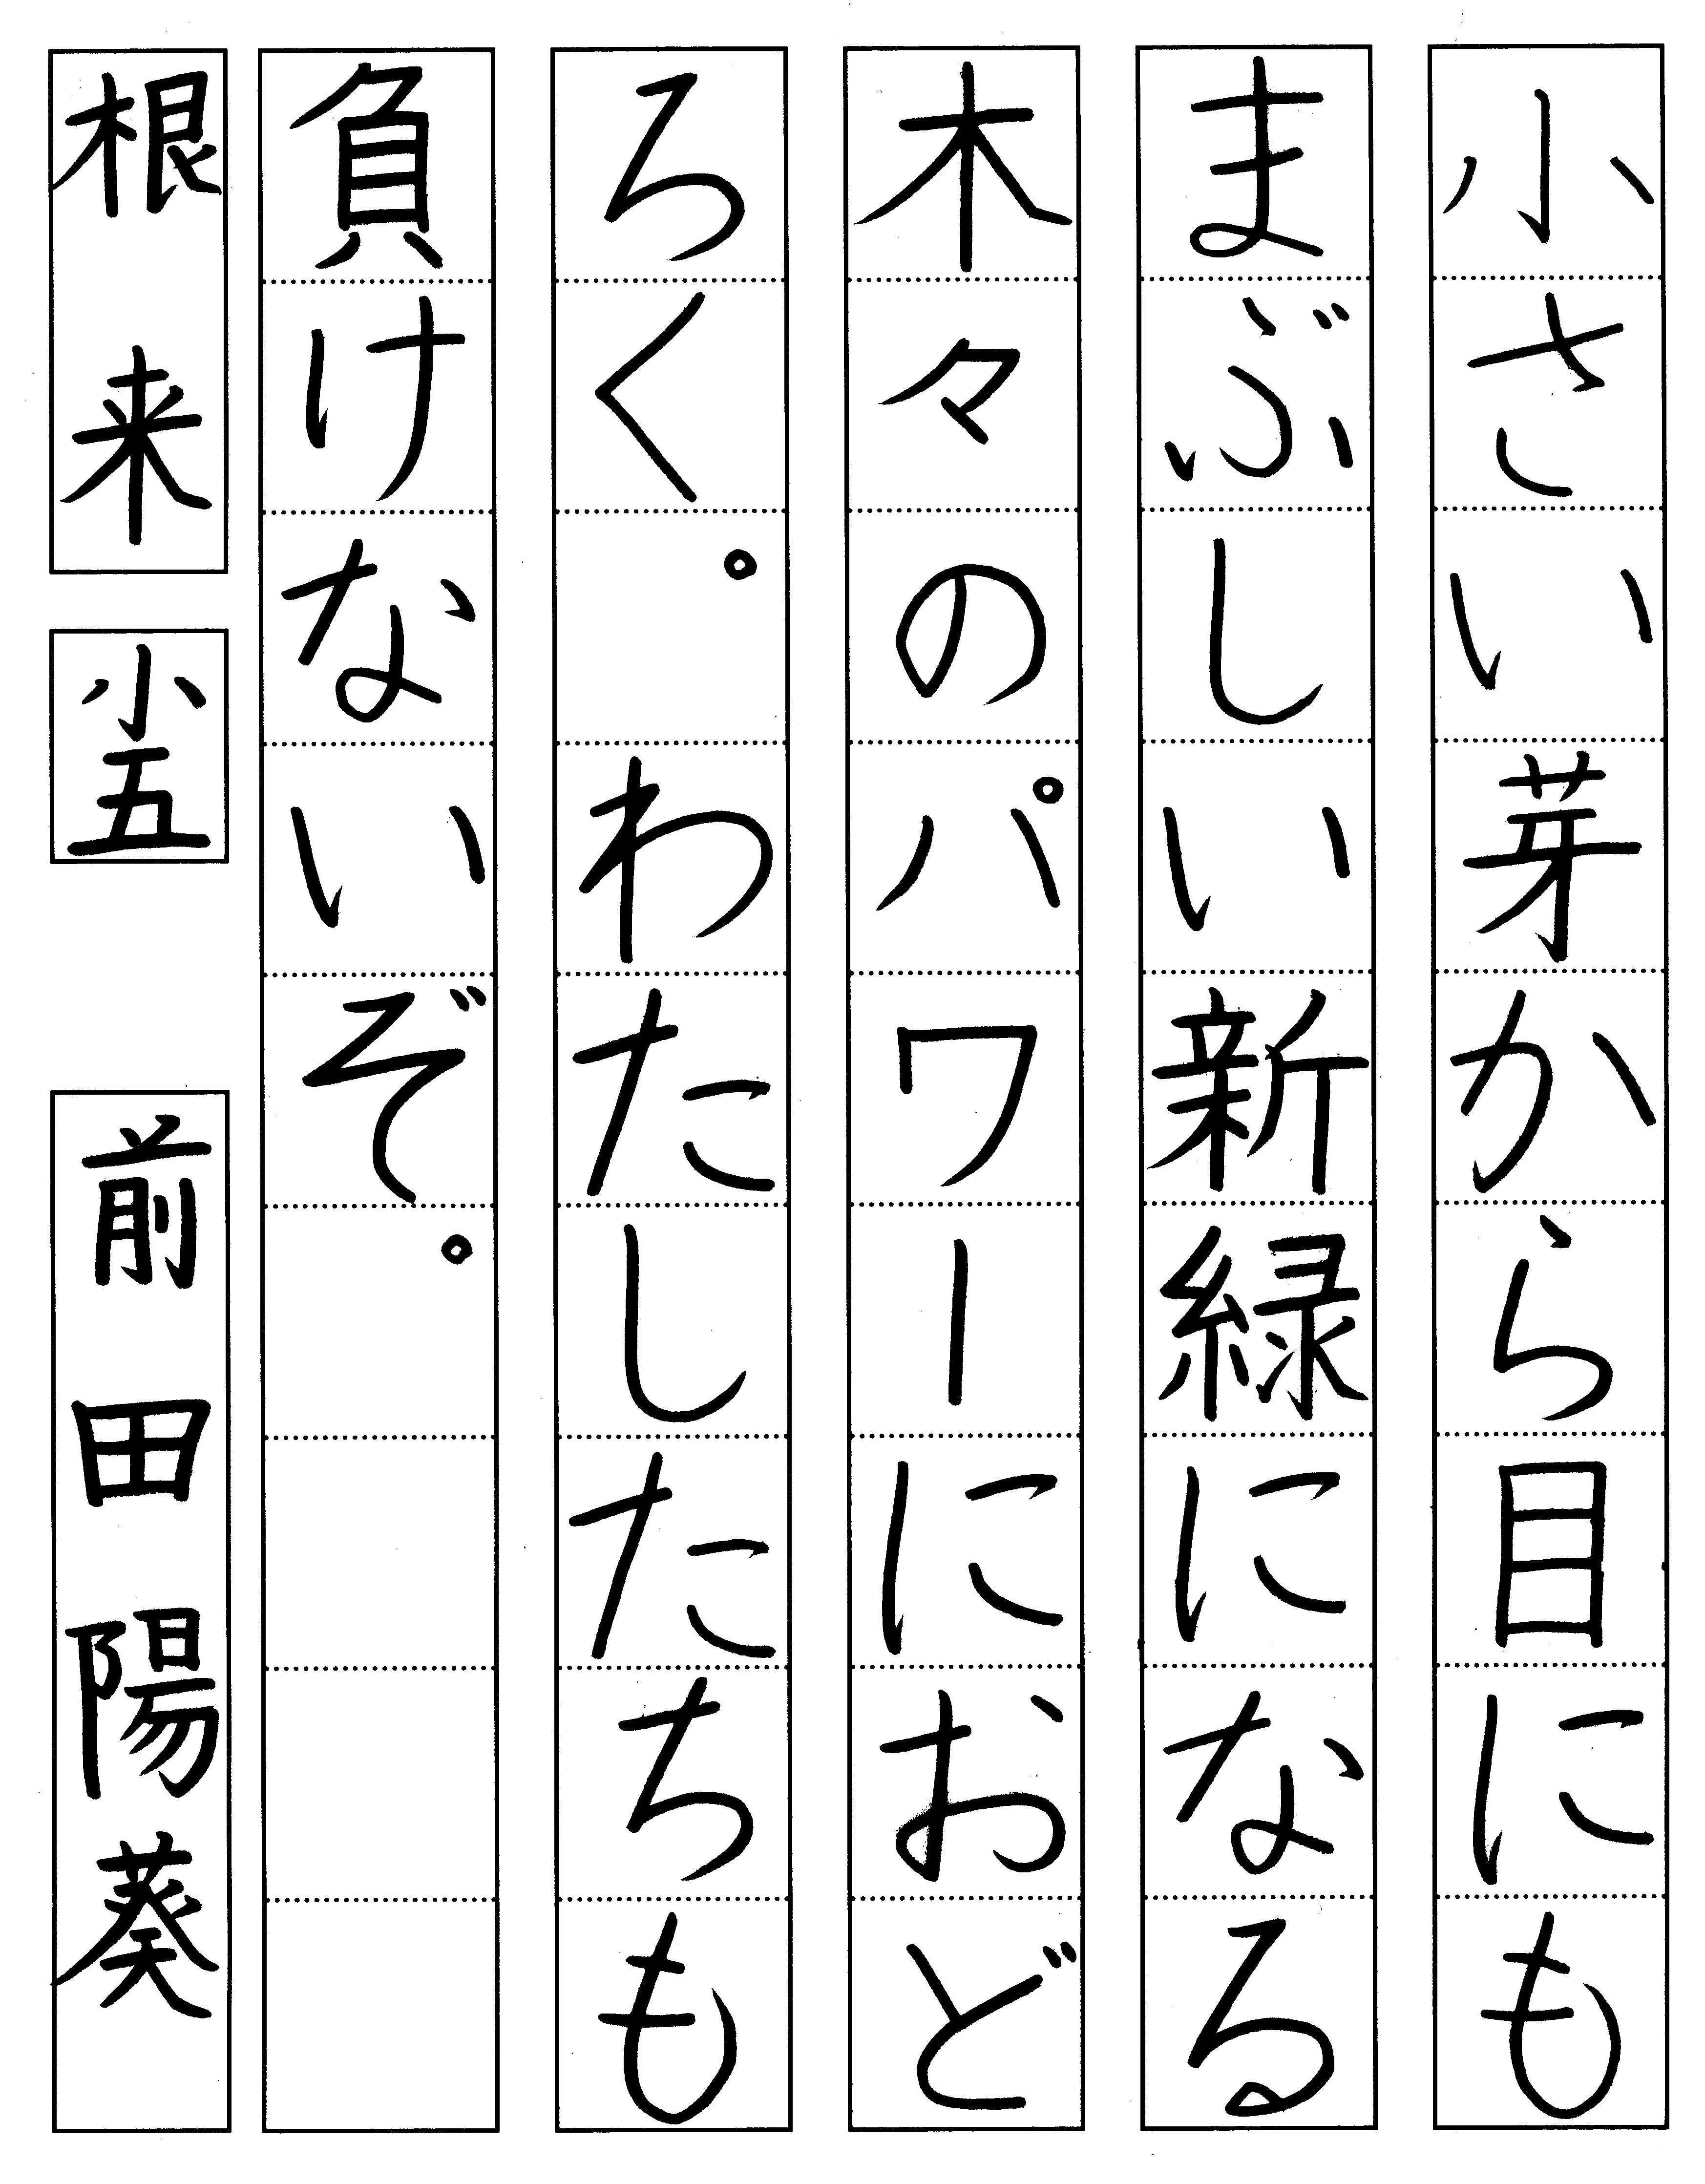 小さい芽から目にも
まぶしい新緑になる
木々のパワーにおど
ろく。わたしたちも
負けないぞ。
根来 小五 前田陽葵